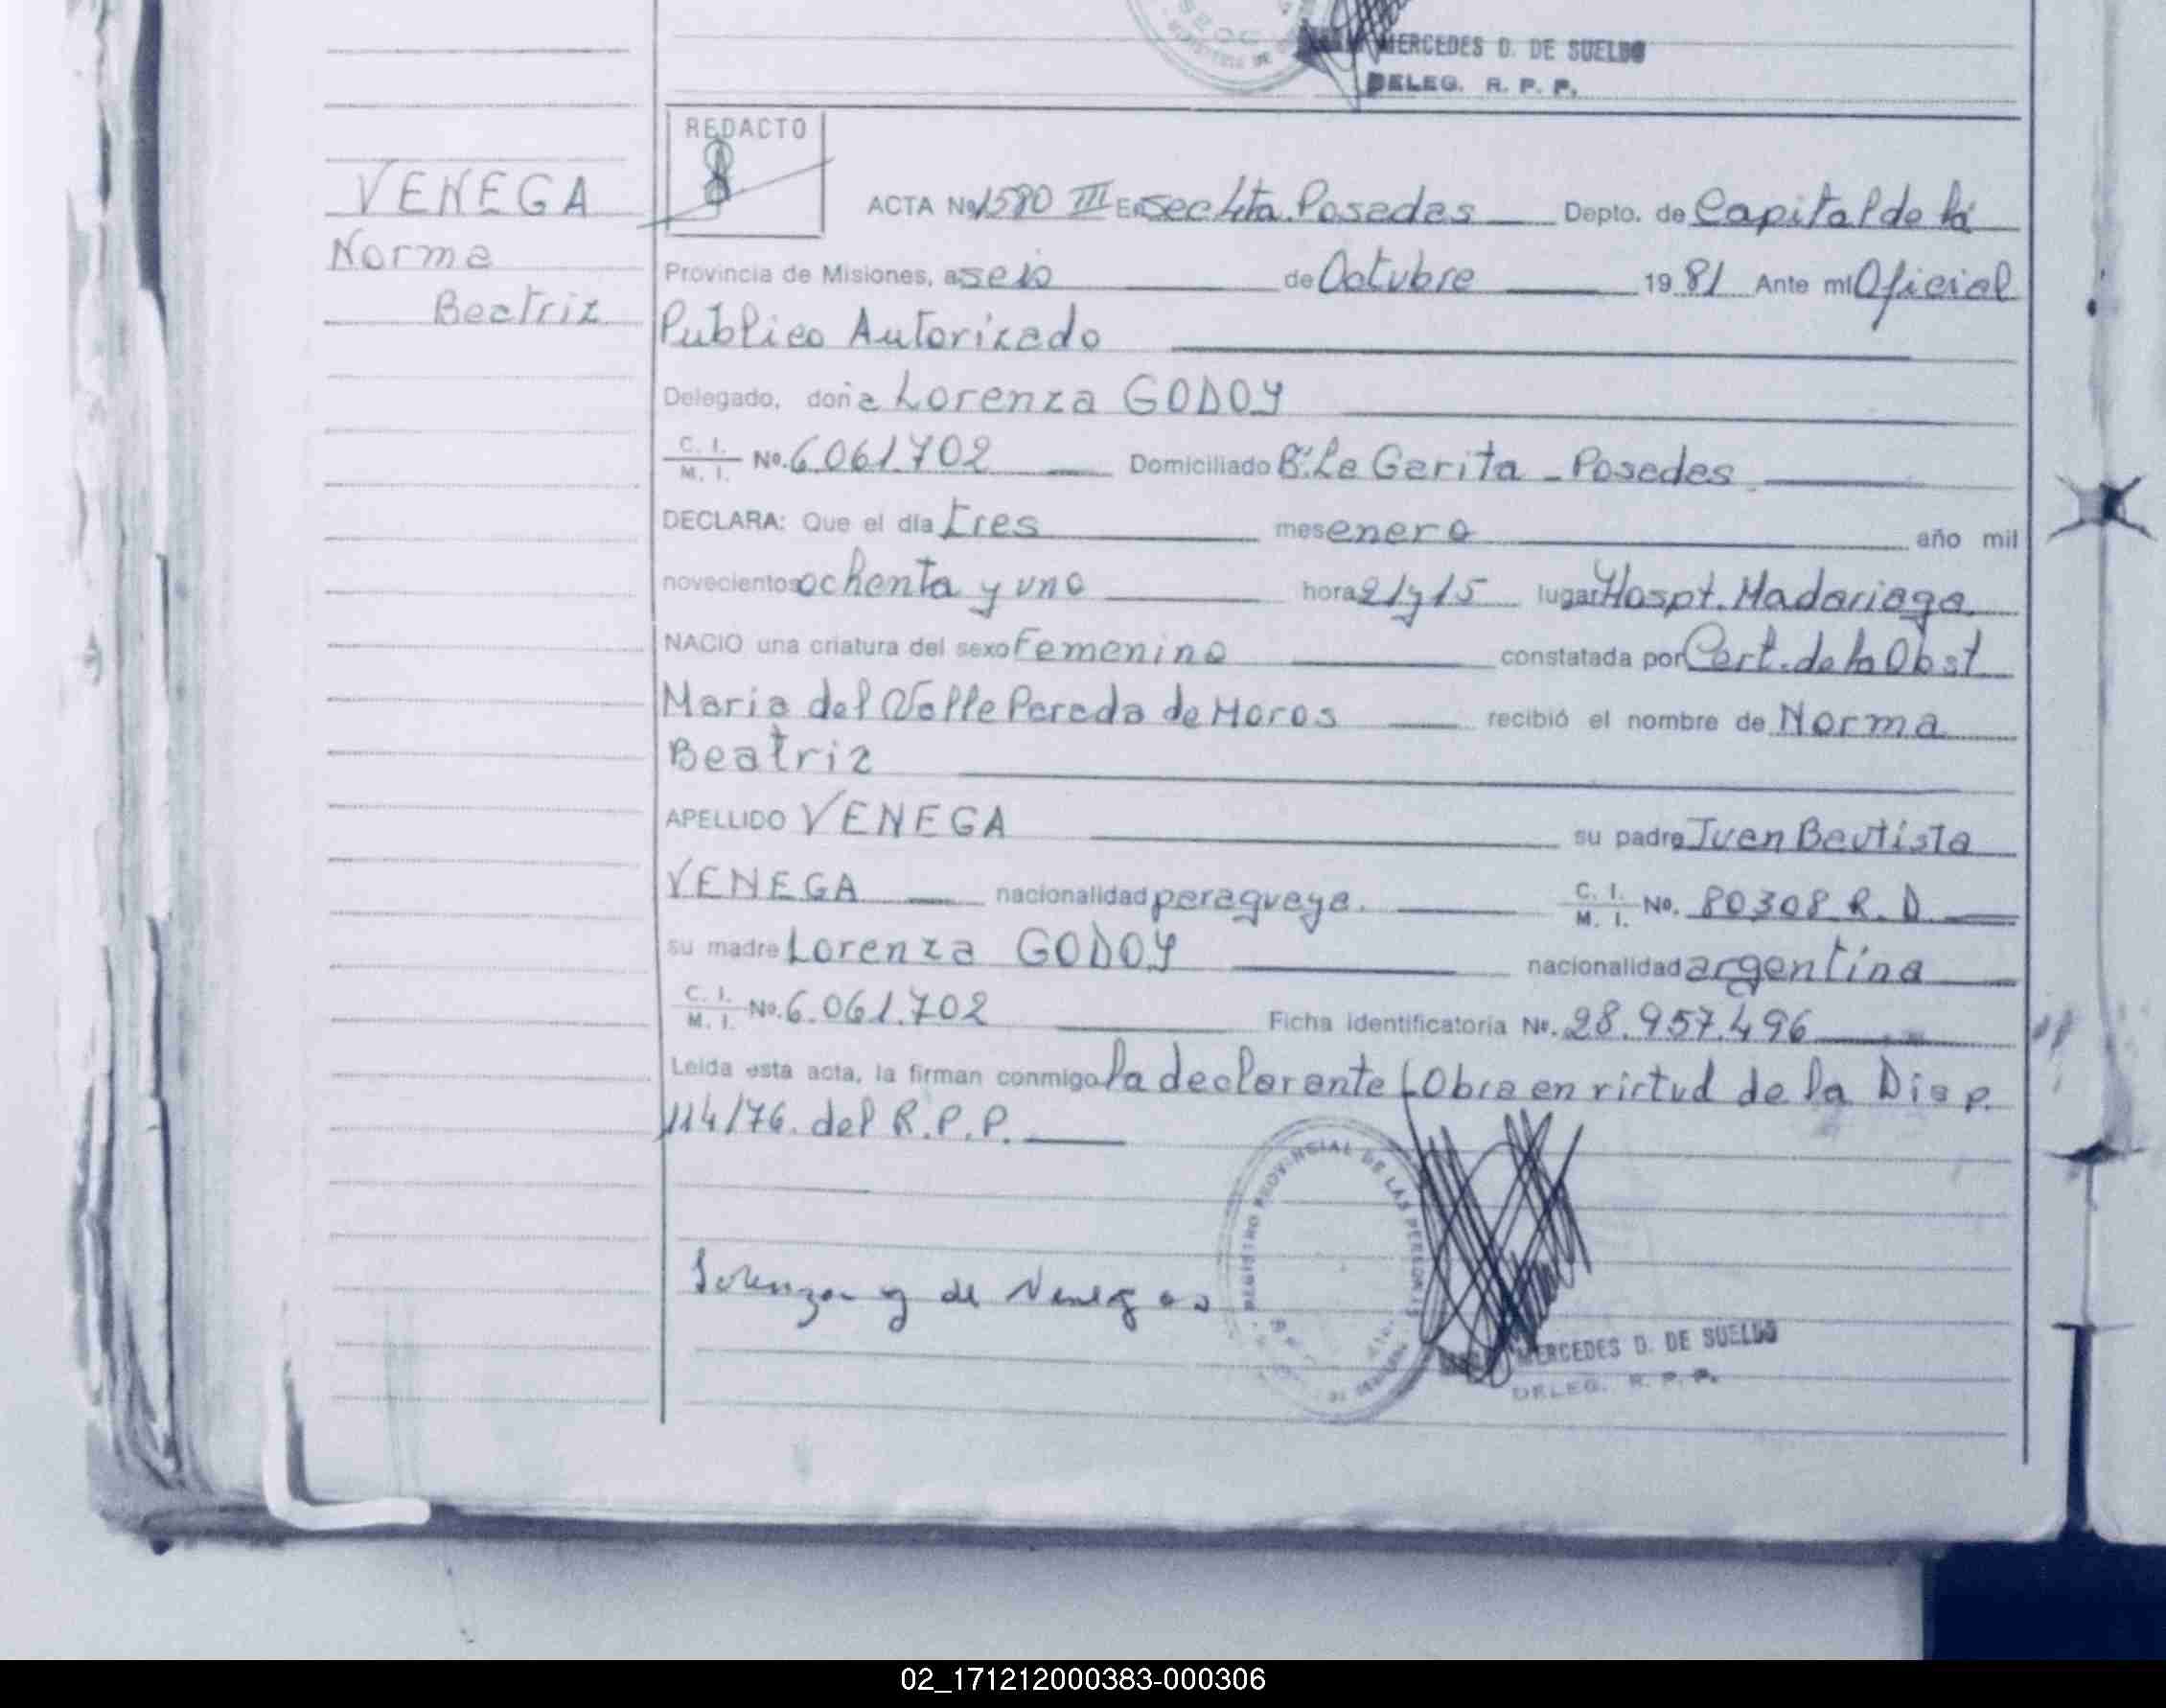 MERCEDES D. DE SUELDO
DELEG. R. P. P.
REDACTO
VENEGA
Norma
Beatriz
ACTA Nº 1580 III En Sec 4ta. Posadas Depto. de Capital de la
Provincia de Misiones, a seis de Octubre 1981 Ante mi Oficial
Publico Autorizado
Delegado, doña Lorenza GODOY
C. I. / M. I. Nº. 6.061.702 Domiciliado Bº. La Garita - Posadas
DECLARA: Que el día tres mes enero año mil
novecientos ochenta y uno hora 21 y 15 lugar Hospt. Madariaga
NACIO una criatura del sexo Femenino constatada por Cert. de la Obst
Maria del Valle Pereda de Moros recibió el nombre de Norma
Beatriz
APELLIDO VENEGA su padre Juan Bautista
VENEGA nacionalidad paraguaya. C. I. / M. I. Nº. 80308 R. D.
su madre Lorenza GODOY nacionalidad argentina
C. I. / M. I. Nº. 6.061.702 Ficha identificatoria Nº. 28.957.496
Leida esta acta, la firman conmigo la declarante (Obra en virtud de la Disp.
114/76. del R.P.P.
REGISTRO PROVINCIAL DE LAS PERSONAS
Lorenza g de Venegas
MERCEDES D. DE SUELDO
DELEG. R. P. P.
02_171212000383-000306